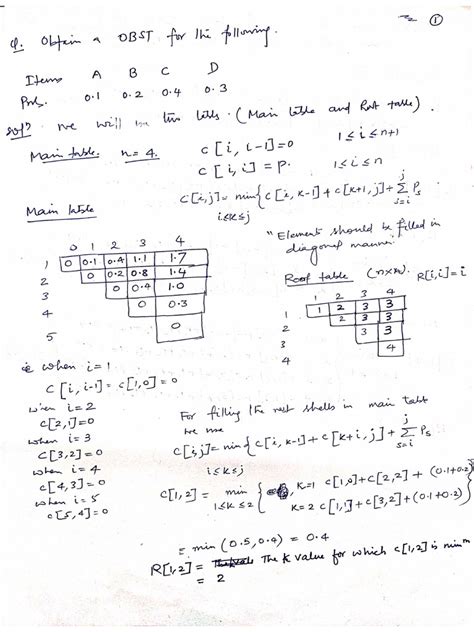 ①
Q. Obtain a OBST for the following.
Items A B C D
Prob. 0.1 0.2 0.4 0.3
solⁿ we will use two tables. (Main table and Root table).
Main table. n=4.
C[i, i-1]=0 1≤i≤n+1
C[i,i]=P. 1≤i≤n
C[i,j]=min{C[i,K-1]+C[K+1,j]+ j Σ s=i Ps
i≤K≤j
Main table
"Element should be filled in
diagonal manner"
0 1 2 3 4
1 0 0.1 0.4 1.1 1.7
2 0 0.2 0.8 1.4
3 0 0.4 1.0
4 0 0.3
5 0
Root table (n×n). R[i,i]=i
1 2 3 4
1 1 2 3 3
2 2 3 3
3 3 3
4 4
ie when i=1
C[i,i-1]=C[1,0]=0
when i=2
C[2,1]=0
when i=3
C[3,2]=0
when i=4
C[4,3]=0
when i=5
C[5,4]=0
For filling the rest shells in main table
we use
C[i,j]=min{C[i,K-1]+C[K+1,j]+ j Σ s=i Ps
i≤K≤j
C[1,2]= min 1≤K≤2 { K=1 C[1,0]+C[2,2]+(0.1+0.2)
K=2 C[1,1]+C[3,2]+(0.1+0.2) }
=min(0.5,0.4)=0.4
R[1,2]= The K value for which C[1,2] is minᵐ
=2